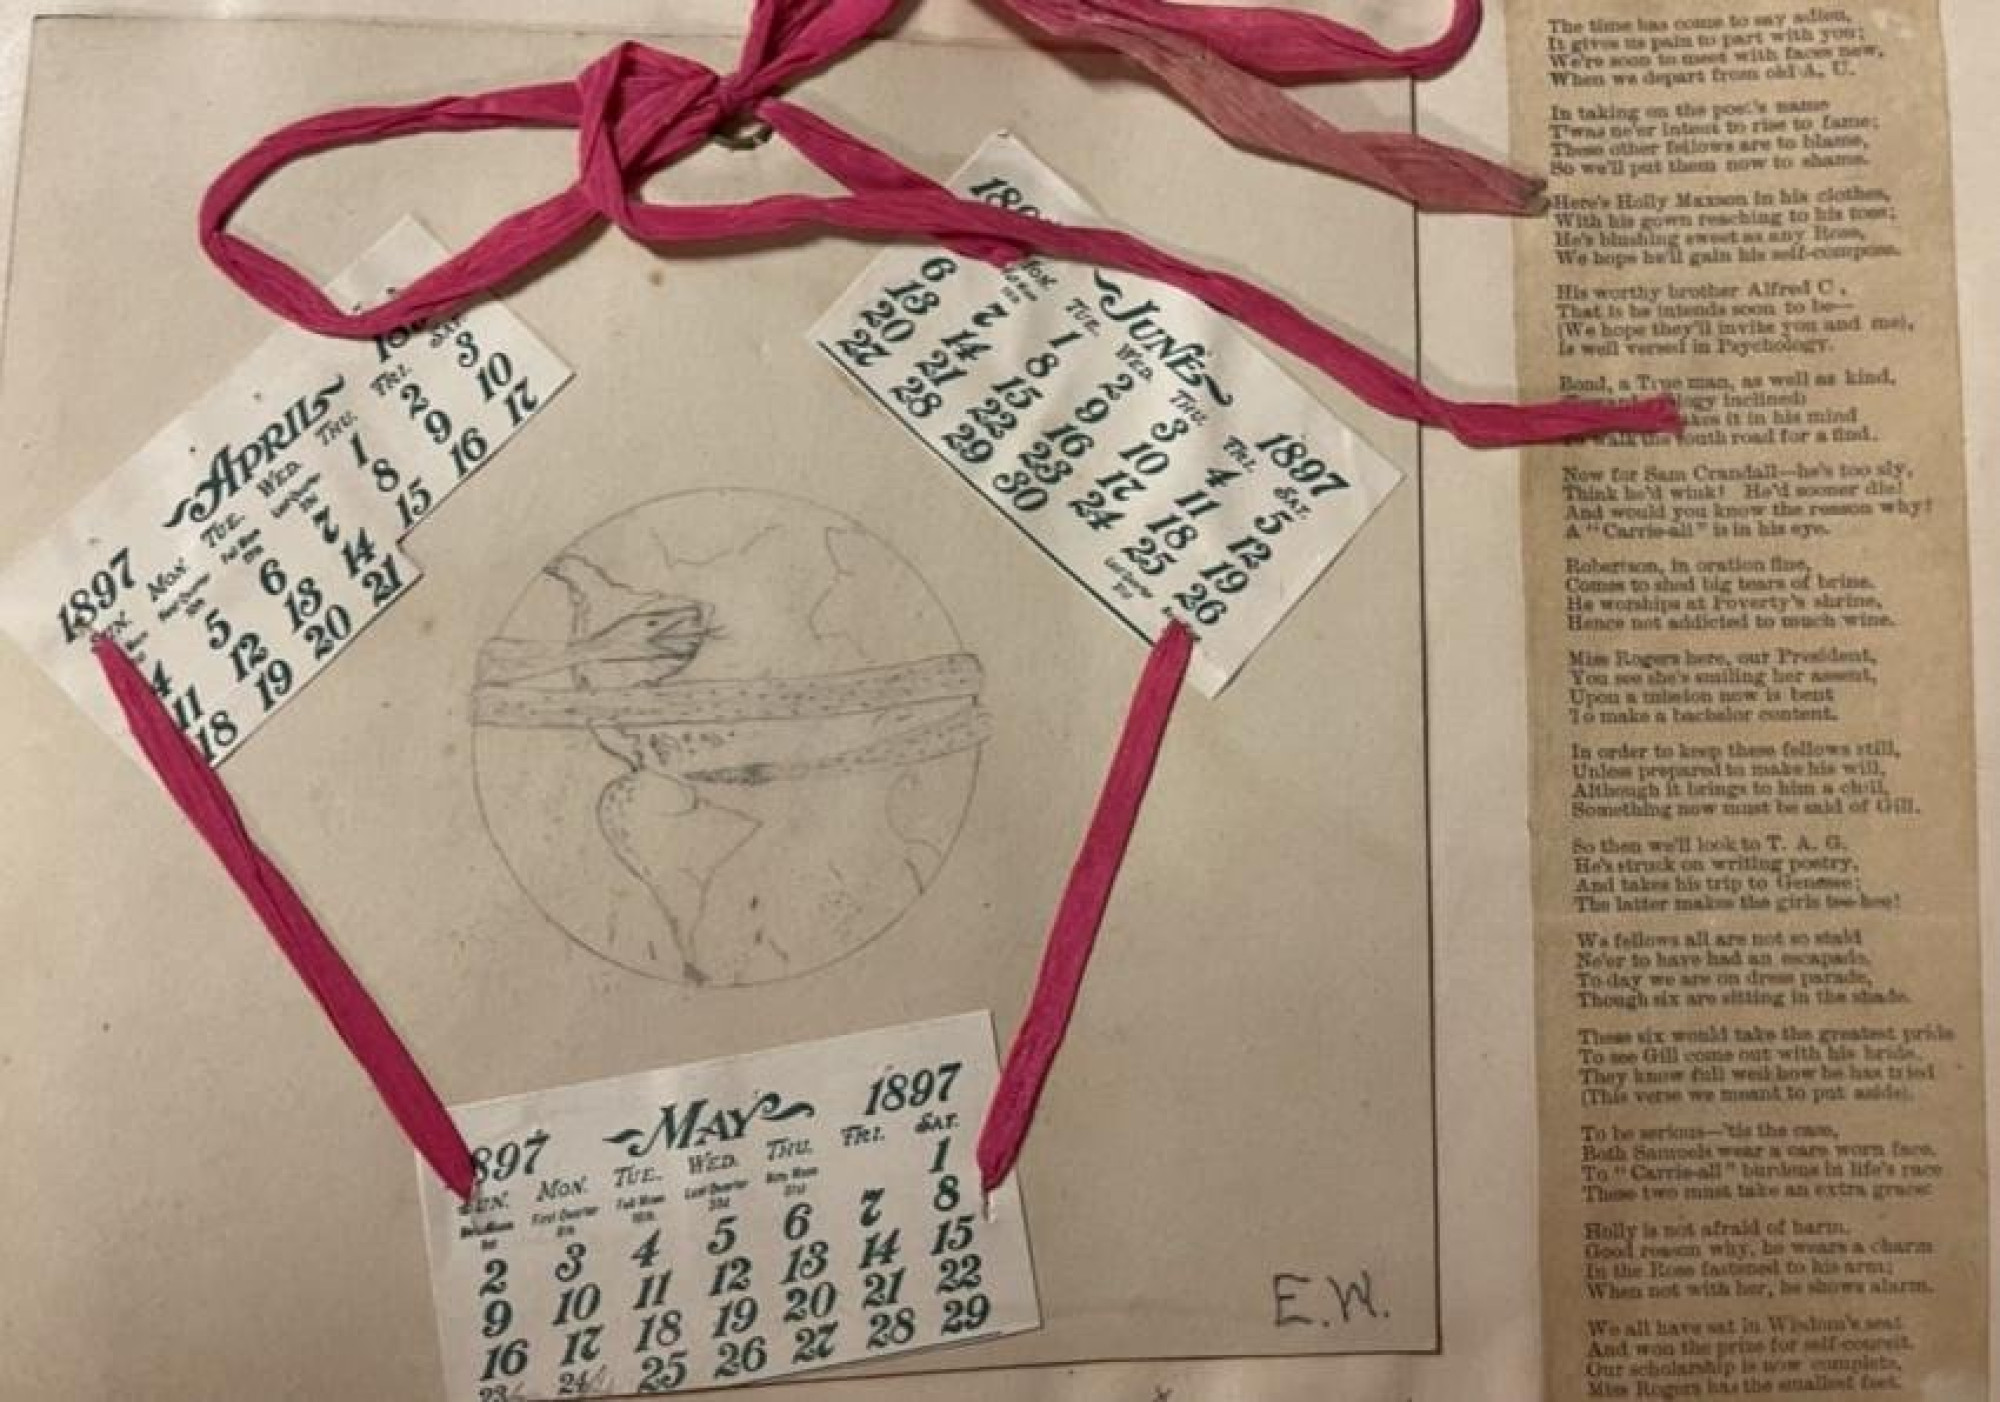 1897
APRIL
MON. TUE. WED. THU. FRI.
1 2 3
4 5 6 7 8 9 10
11 12 13 14 15 16 17
18 19 20 21
JUNE
1897
TUE. WED. THU. FRI. SAT.
1 2 3 4 5
6 7 8 9 10 11 12
13 14 15 16 17 18 19
20 21 22 23 24 25 26
27 28 29 30
897 MAY 1897
MON. TUE. WED. THU. FRI. SAT.
1
2 3 4 5 6 7 8
9 10 11 12 13 14 15
16 17 18 19 20 21 22
23 24 25 26 27 28 29
E.W.
The time has come to say adieu,
It gives us pain to part with you;
We're soon to meet with faces new,
When we depart from old A. U.
In taking on the poet's name
T'was ne'er intent to rise to fame;
These other fellows are to blame,
So we'll put them now to shame.
Here's Holly Maxson in his clothes,
With his gown reaching to his toes;
He's blushing sweet as any Rose,
We hope he'll gain his self-compose.
His worthy brother Alfred C,
That is he intends soon to be—
(We hope they'll invite you and me),
Is well versed in Psychology.
Bond, a True man, as well as kind,
inclined:
it in his mind
To walk the south road for a find.
Now for Sam Crandall—he's too sly,
Think he'd wink! He'd sooner die!
And would you know the reason why?
A "Carrie-all" is in his eye.
Robertson, in oration fine,
Comes to shed big tears of brine.
He worships at Poverty's shrine,
Hence not addicted to much wine.
Miss Rogers here, our President,
You see she's smiling her assent,
Upon a mission now is bent
To make a bachelor content.
In order to keep these fellows still,
Unless prepared to make his will,
Although it brings to him a chill,
Something now must be said of Gill.
So then we'll look to T. A. G.
He's struck on writing poetry,
And takes his trip to Genesee;
The latter makes the girls tee-hee!
We fellows all are not so staid
Ne'er to have had an escapade,
To-day we are on dress parade,
Though six are sitting in the shade.
These six would take the greatest pride
To see Gill come out with his bride.
They know full well how he has tried
(This verse we meant to put aside).
To be serious—'tis the case,
Both Samuels wear a care worn face.
To "Carrie-all" burdens in life's race
These two must take an extra grace:
Holly is not afraid of harm.
Good reason why, he wears a charm
In the Rose fastened to his arm;
When not with her, he shows alarm.
We all have sat in Wisdom's seat
And won the prize for self-conceit.
Our scholarship is now complete,
Miss Rogers has the smallest feet.